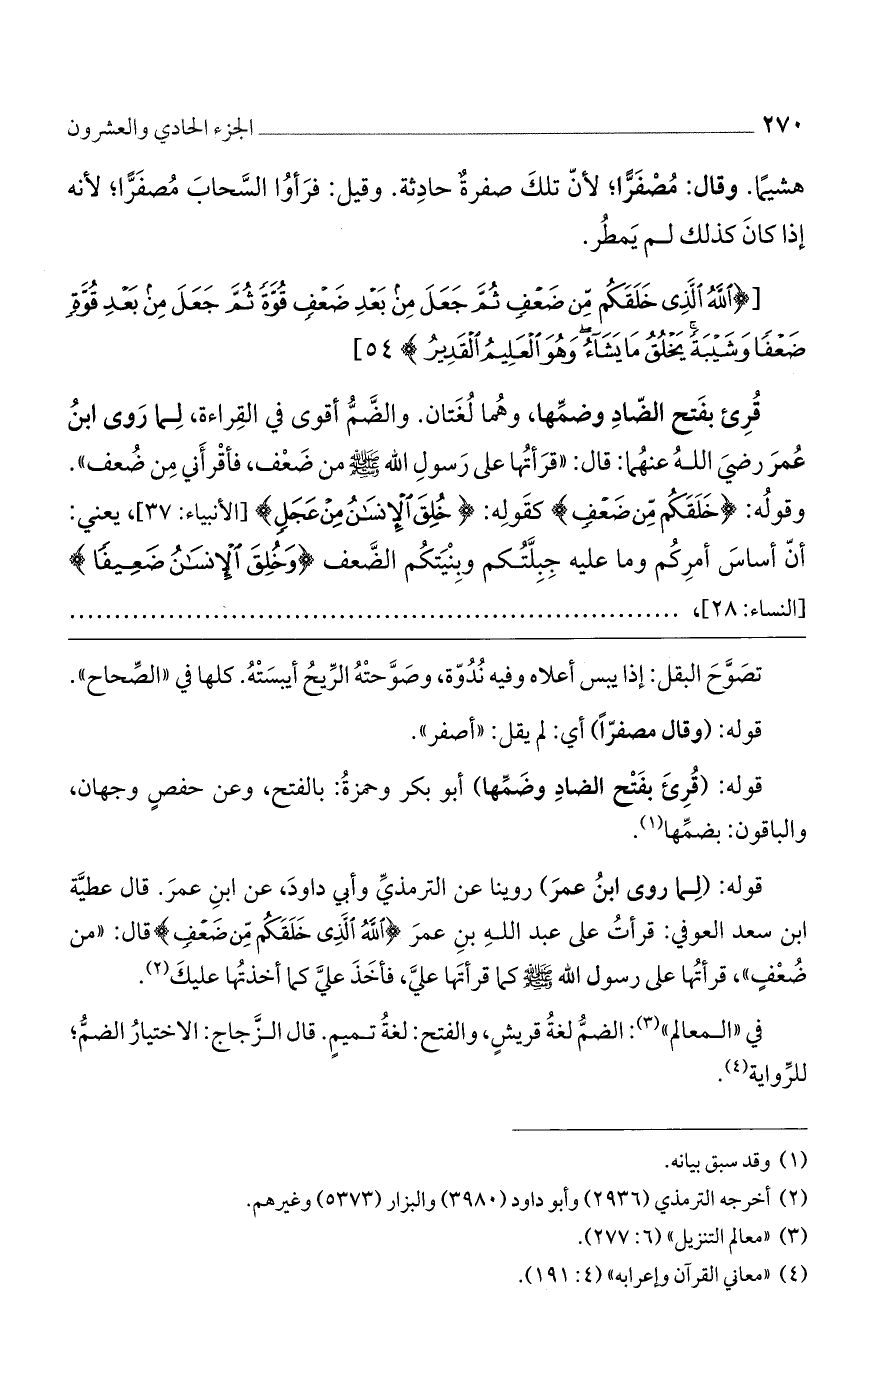 ٢٧٠ ــــــــ الجزء الحادي والعشرون
هشيمًا. وقال: مُصْفَرًّا؛ لأنّ تلكَ صفرةٌ حادِثة. وقيل: فرَأوُا السَّحابَ مُصفرًّا؛ لأنه
إذا كانَ كذلك لـم يَمطُر.
[﴿ٱللَّهُ ٱلَّذِى خَلَقَكُم مِّن ضَعۡفٖ ثُمَّ جَعَلَ مِنۢ بَعۡدِ ضَعۡفٖ قُوَّةٗ ثُمَّ جَعَلَ مِنۢ بَعۡدِ قُوَّةٖ
ضَعۡفٗا وَشَيۡبَةٗۚ يَخۡلُقُ مَا يَشَآءُۖ وَهُوَ ٱلۡعَلِيمُ ٱلۡقَدِيرُ﴾ ٥٤]
قُرِئ بفَتح الضّادِ وضمِّها، وهُما لُغَتان. والضَّمُّ أقوى في القِراءة، لِـما رَوى ابنُ
عُمرَ رضيَ اللـهُ عنهُما: قال: «قرَأتُها على رَسولِ الله ﷺ من ضَعْف، فأقْرأَني مِن ضُعف».
وقولُه: ﴿خَلَقَكُم مِّن ضَعۡفٖ﴾ كقَولِه: ﴿خُلِقَ ٱلۡإِنسَٰنُ مِنۡ عَجَلٖ﴾ [الأنبياء: ٣٧]، يعني:
أنّ أساسَ أمرِكُم وما عليه جِبِلَّتُـكم وبِنْيَتكُم الضَّعف ﴿وَخُلِقَ ٱلۡإِنسَٰنُ ضَعِيفٗا﴾
[النساء: ٢٨]، ................................................................
تصَوَّحَ البقل: إذا يبس أعلاه وفيه نُدُوّة، وصَوَّحتْهُ الرِّيحُ أيبسَتْهُ. كلها في «الصِّحاح».
قوله: (وقال مصفرّاً) أي: لم يقل: «أصفر».
قوله: (قُرِئَ بفَتْح الضادِ وضَمِّها) أبو بكر وحمزةُ: بالفتح، وعن حفصٍ وجهان،
والباقون: بضمِّها(١).
قوله: (لِـما روى ابنُ عمرَ) روينا عن الترمذيِّ وأبي داودَ، عن ابنِ عمرَ. قال عطيَّة
ابن سعد العوفي: قرأتُ على عبد اللـهِ بنِ عمرَ ﴿ٱللَّهُ ٱلَّذِى خَلَقَكُم مِّن ضَعۡفٖ﴾ قال: «من
ضُعْفٍ»، قرأتُها على رسول الله ﷺ كما قرأتَها عليَّ، فأخَذَ عليَّ كما أخذتُها عليكَ(٢).
في «الـمعالم»(٣): الضمُّ لغةُ قريشٍ، والفتح: لغةُ تـميمٍ. قال الـزَّجاج: الاختيارُ الضمُّ؛
للرِّواية(٤).
(١) وقد سبق بيانه.
(٢) أخرجه الترمذي (٢٩٣٦) وأبو داود (٣٩٨٠) والبزار (٥٣٧٣) وغيرهم.
(٣) «معالم التنزيل» (٦: ٢٧٧).
(٤) «معاني القرآن وإعرابه» (٤: ١٩١).